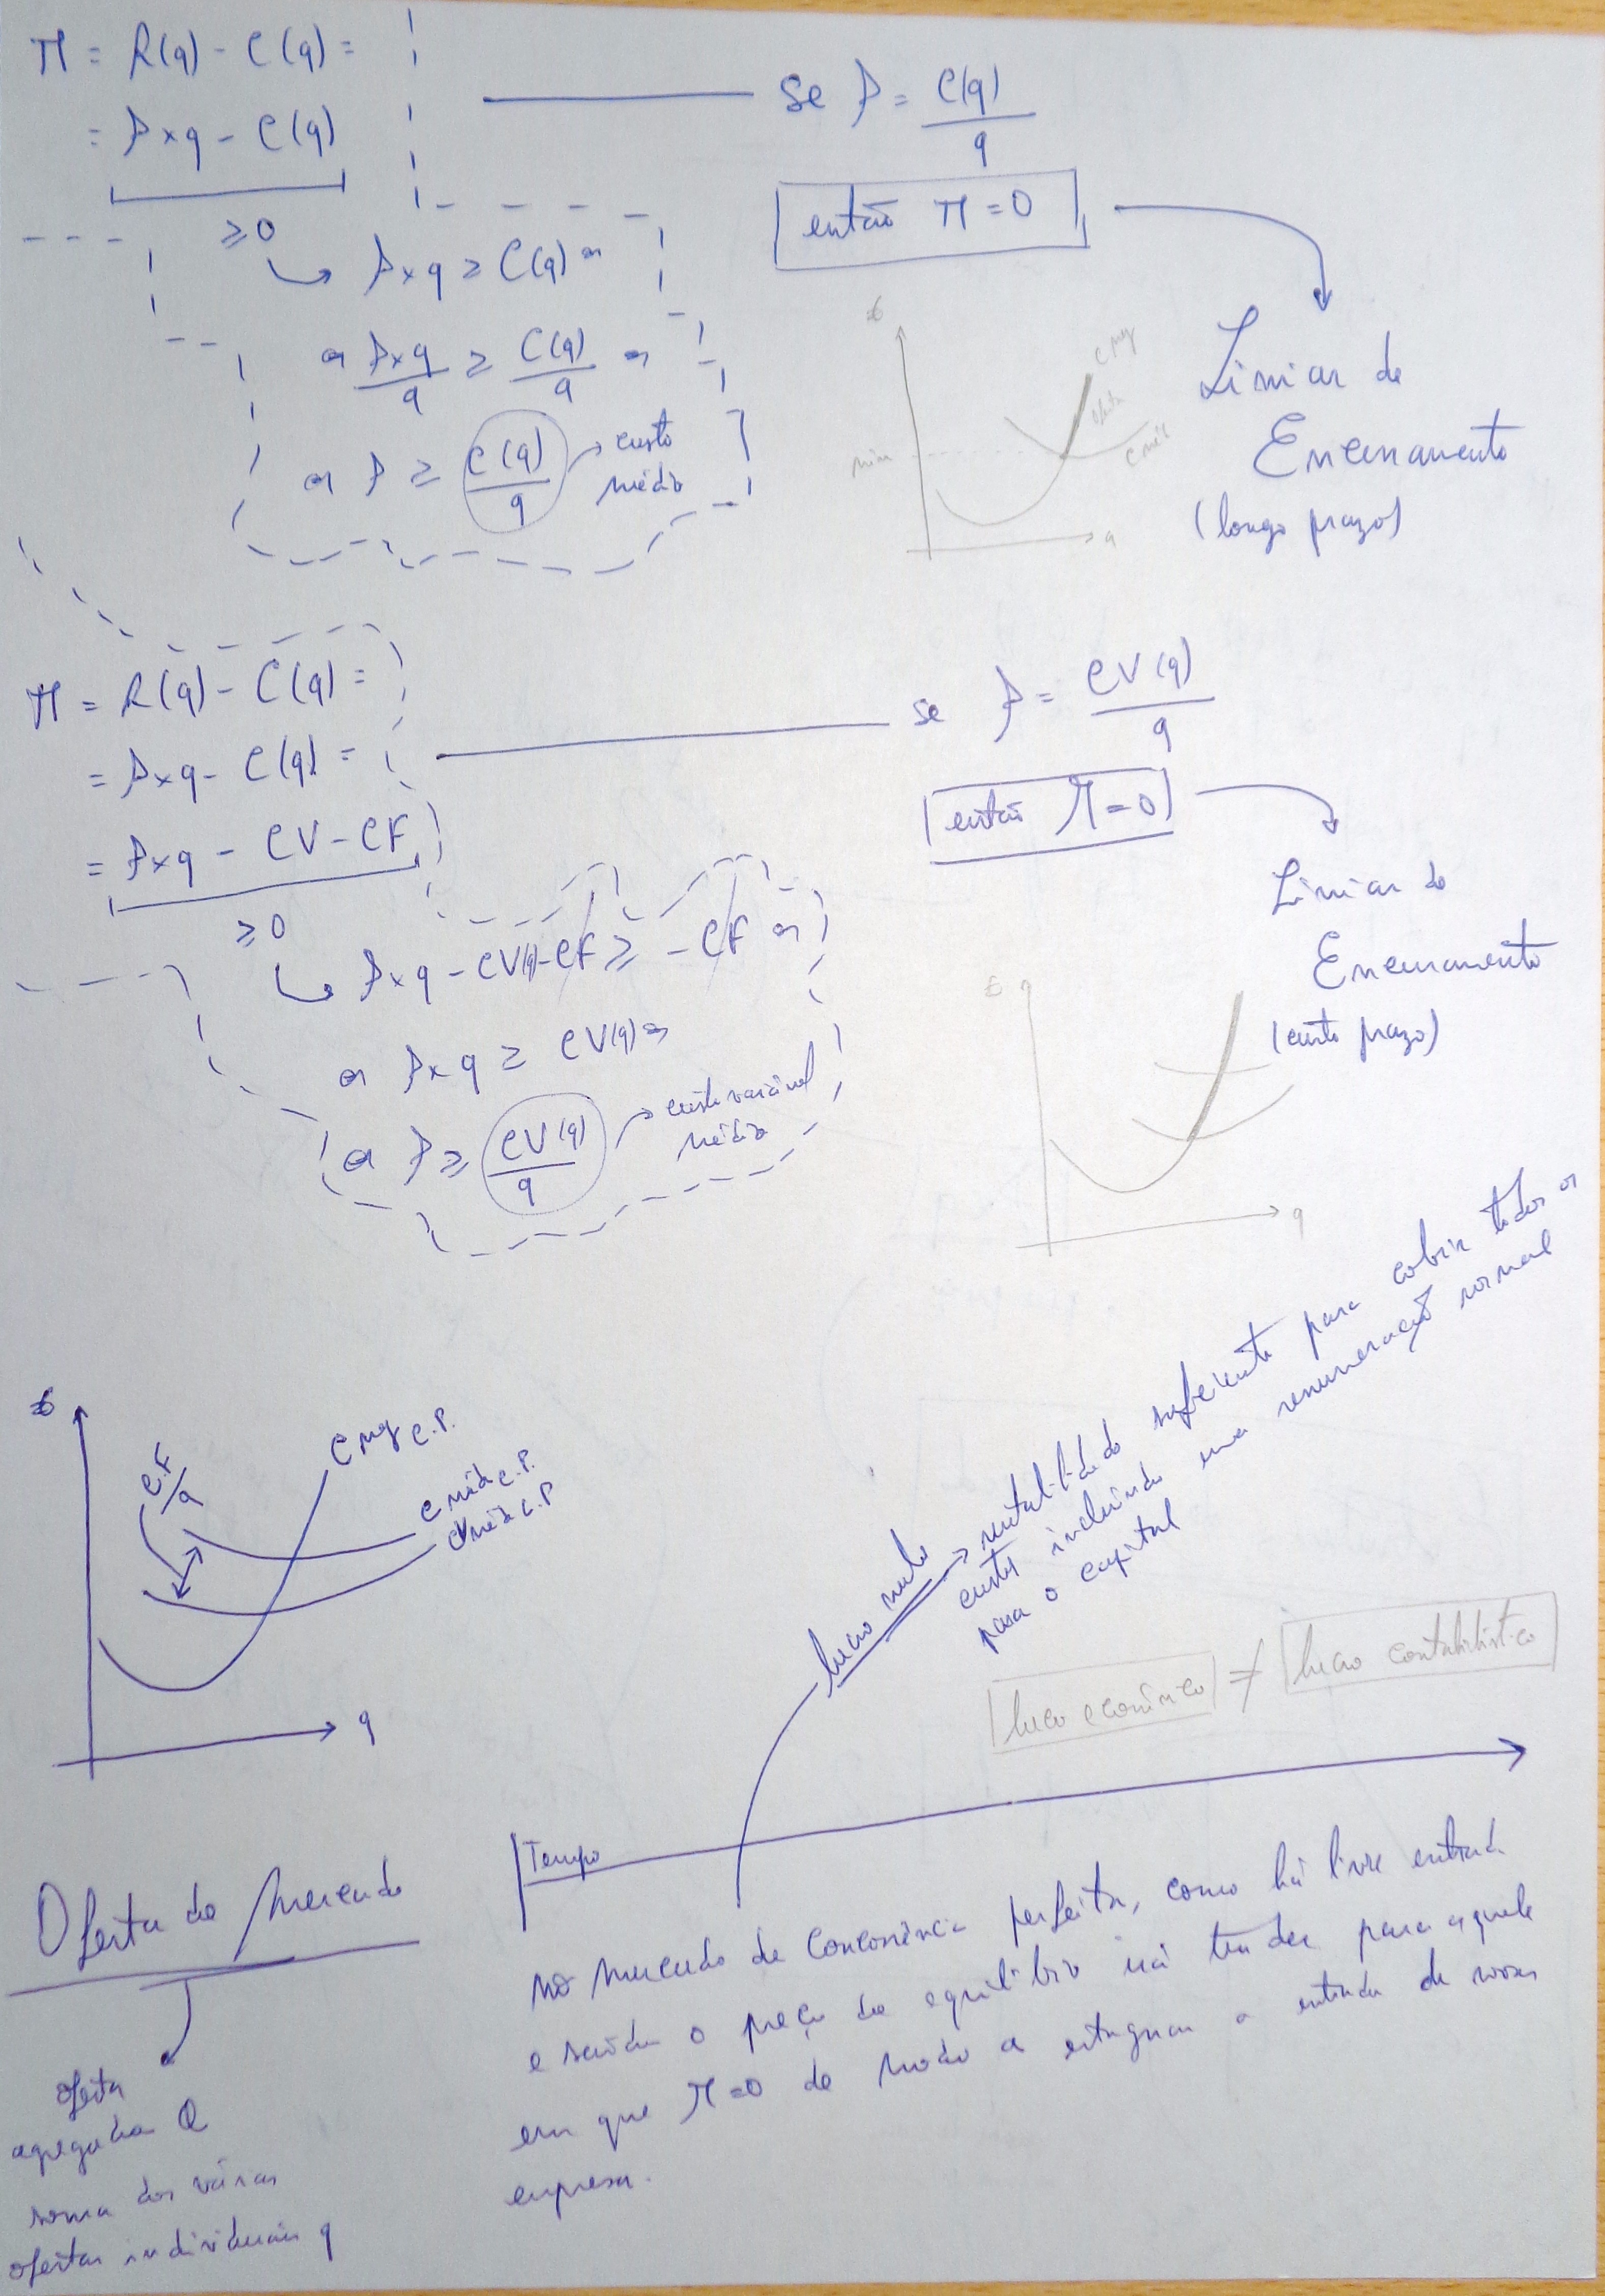 π = R(q) - C(q) =
= P×q - C(q)
≥0
P×q ≥ C(q) ⇔
⇔ P×q/q ≥ C(q)/q ⇔
⇔ P ≥ C(q)/q → custo médio
se P = C(q)/q
então π = 0
Limiar de
Encerramento
(longo prazo)
€
C mg
oferta
C méd
min
q
π = R(q) - C(q) =
= P×q - C(q) =
= P×q - CV - CF
≥0
P×q - CV(q) - CF ≥ - CF ⇔
⇔ P×q ≥ CV(q) ⇔
⇔ P ≥ CV(q)/q → custo variável médio
se P = CV(q)/q
então π = 0
Limiar de
Encerramento
(curto prazo)
€
q
€
CF/q
C mg C.P.
C méd C.P.
CV méd C.P
q
lucro nulo → rentabilidade suficiente para cobrir todos os
custos incluindo uma remuneração normal
para o capital
lucro económico ≠ lucro contabilístico
Tempo
Oferta de Mercado
oferta
agregada Q
soma das várias
ofertas individuais q
no mercado de concorrência perfeita, como há livre entrada
e saída o preço de equilíbrio irá tender para aquele
em que π=0 de modo a estagnar a entrada de novas
empresa.